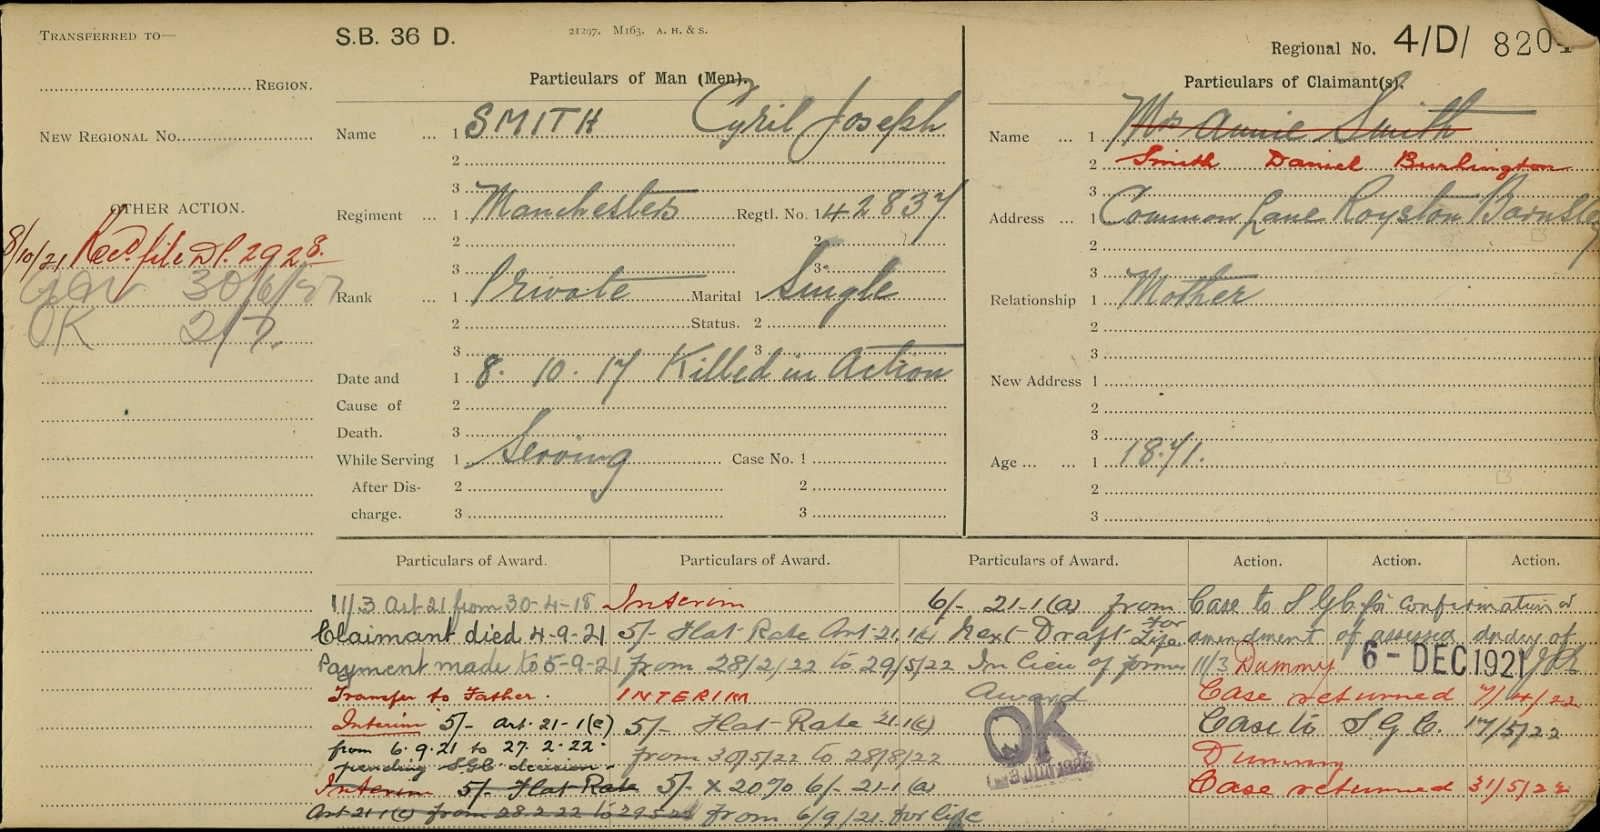 TRANSFERRED TO—
REGION.
NEW REGIONAL No.
OTHER ACTION.
8/10/21 Recd. file D1. 2928.
30/6/
OK 2/7.
S.B. 36 D.
21297. M163. A. H. & S.
Particulars of Man (Men).
Name ... 1 SMITH Cyril Joseph
2
3
Regiment ... 1 Manchesters Regtl. No. 1 42837
2 2
3 3
Rank ... 1 Private Marital 1 Single
2 Status. 2
3 3
Date and 1 8. 10. 17 Killed in Action
Cause of 2
Death. 3
While Serving 1 Serving Case No. 1
After Dis- 2 2
charge. 3 3
Regional No. 4/D/ 8204
Particulars of Claimant(s).
Name ... 1 Mrs Annie Smith
2 Smith Daniel Burlington
3
Address ... 1 Common Lane Royston Barnsley
2
3
Relationship 1 Mother
2
3
New Address 1
2
3
Age ... ... 1 1871.
2
3
Particulars of Award.
11/3 Art 21 from 30-4-18
Claimant died 4-9-21
Payment made to 5-9-21
Transfer to Father.
Interim 5/- Art. 21-1(c)
from 6.9.21 to 27.2.22.
pending SGC decision.
Interim 5/- Flat Rate
Art 21 1(c) from 28.2.22 to 29.5.22
Particulars of Award.
Interim
5/- Flat Rate Art. 21.1(c)
from 28/2/22 to 29/5/22
INTERIM
5/- Flat Rate 21.1(c)
from 30/5/22 to 28/8/22
5/- x 20% 6/- 21-1(a)
from 6/9/21 for life
Particulars of Award.
6/- 21-1(a) from
Next Draft for Life
In lieu of former
Award
OK
Action. Action. Action.
Case to SGC for confirmation or
amendment of assessed dndcy of
11/3 Dummy 6 - DEC 1921
Case returned 7/4/22
Case to S G C. 17/5/22
Dummy
Case returned 31/5/22